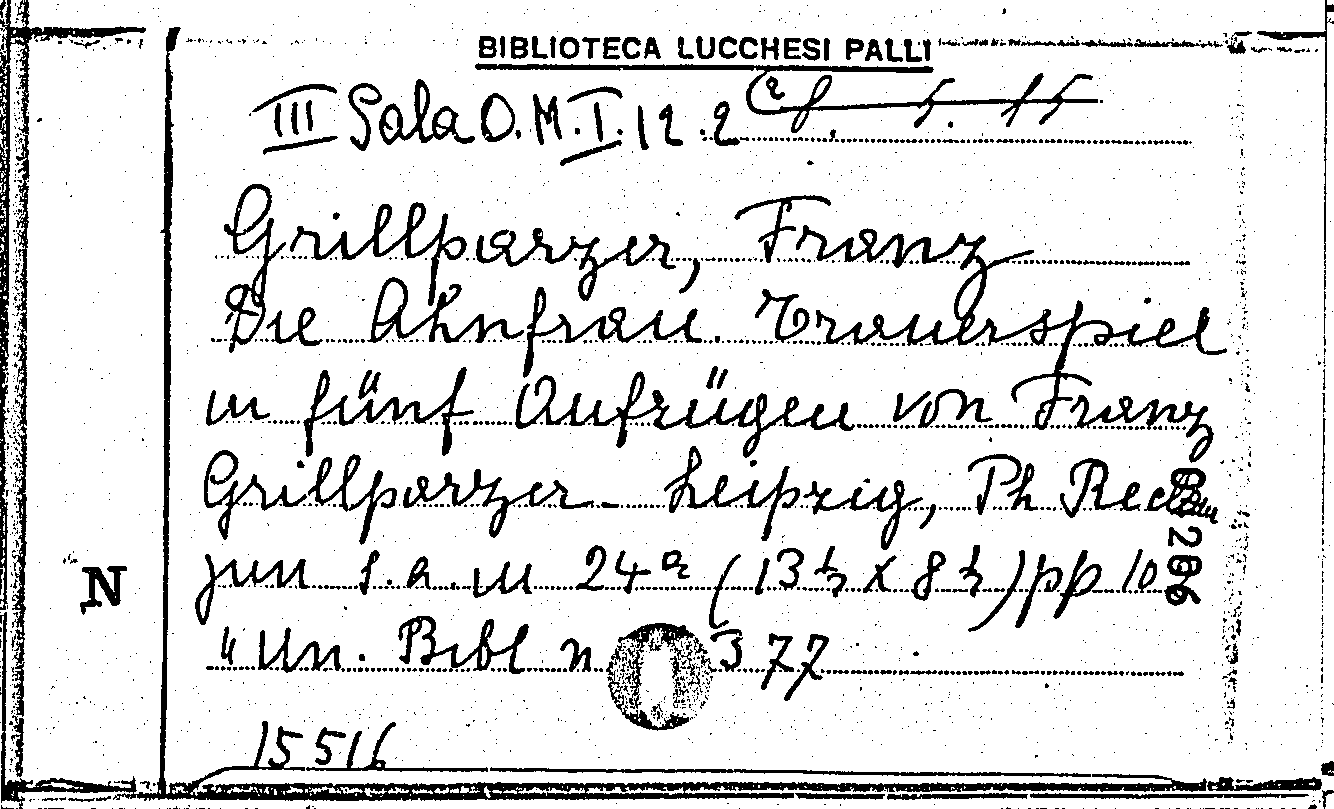 BIBLIOTECA LUCCHESI PALLI
III Sala O.M.I.12.2
Grillparzer, Franz
Die Ahnfrau. Trauerspiel
in fünf Aufzügen von Franz
Grillparzer. Leipzig, Ph Reclam
jun s.a. in 24° (13½ x 8½) pp
"Un. Bibl n 377
N
15516